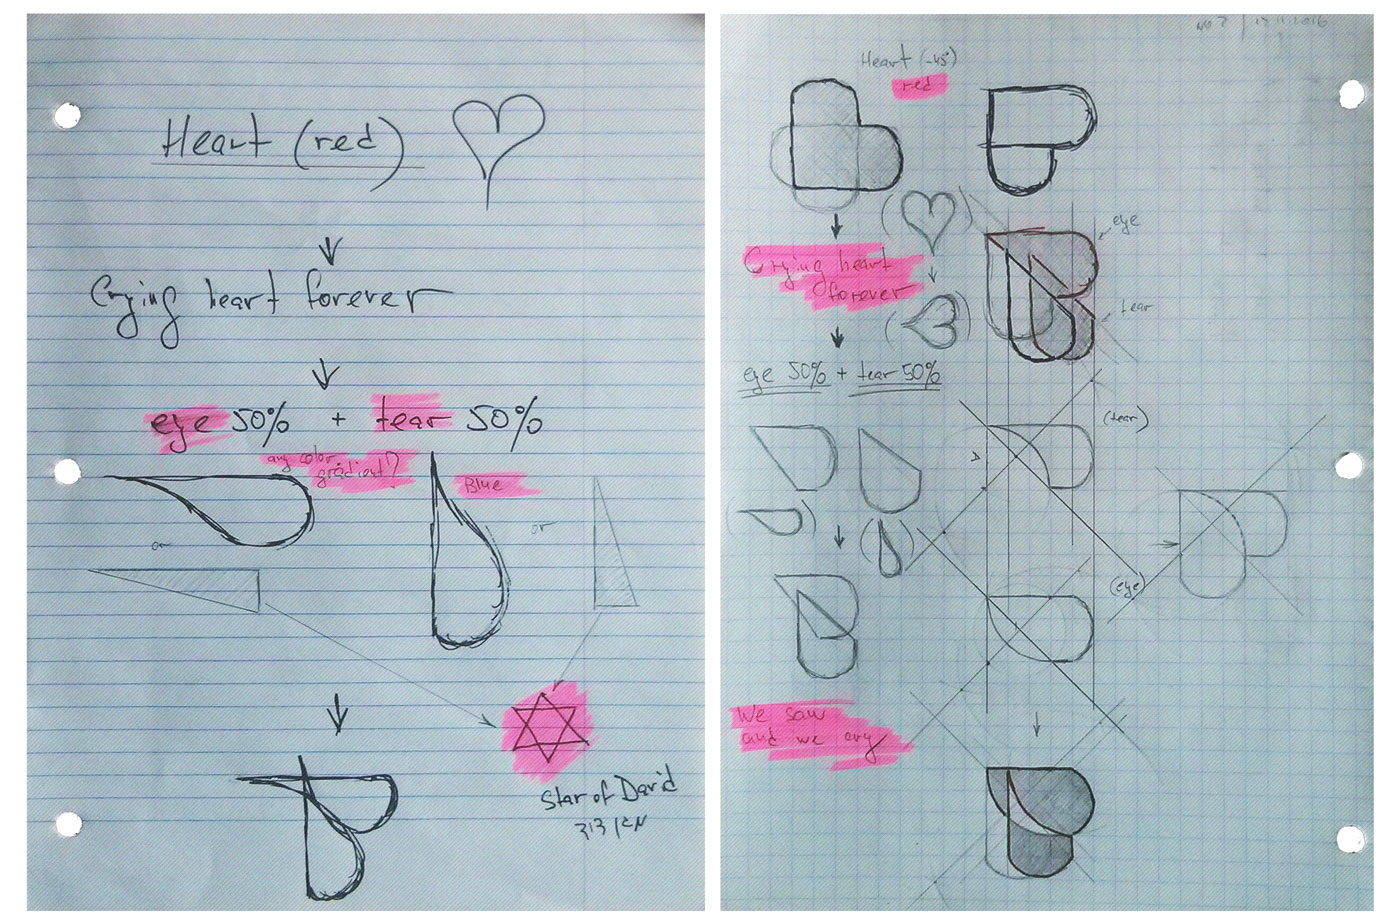 Heart (red)
Crying heart forever
eye 50% + tear 50%
any color
gradient?
Blue
or
or
Star of David
Heart (-45°)
red
Crying heart
forever
eye
tear
eye 50% + tear 50%
(tear)
(eye)
We saw
and we cry